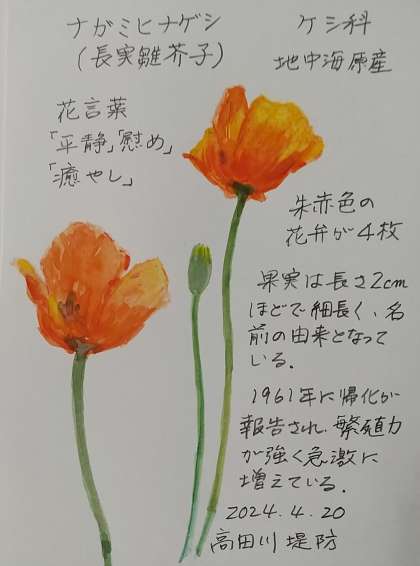 ナガミヒナゲシ
(長実雛芥子)
ケシ科
地中海原産
花言葉
「平静」「慰め」
「癒やし」
朱赤色の
花弁が4枚
果実は長さ2cm
ほどで細長く、名
前の由来となって
いる.
1961年に帰化が
報告され、繁殖力
が強く急激に
増えている.
2024.4.20
高田川堤防